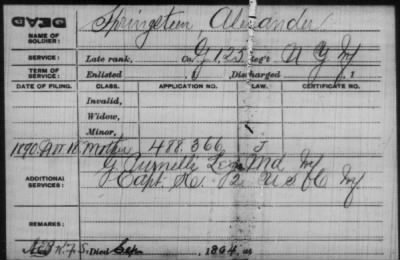 DEAD
Springsteen Alexander
NAME OF SOLDIER:
SERVICE: Late rank, Co. G 125 Reg't N Y Inf
TERM OF SERVICE: Enlisted , 1 Discharged , 1
DATE OF FILING. CLASS. APPLICATION NO. LAW. CERTIFICATE NO.
Invalid,
Widow,
Minor,
1890 Mother 488.366
G Md Inf
ADDITIONAL SERVICES: Capt. 12 U S C Inf
REMARKS:
Died 1864